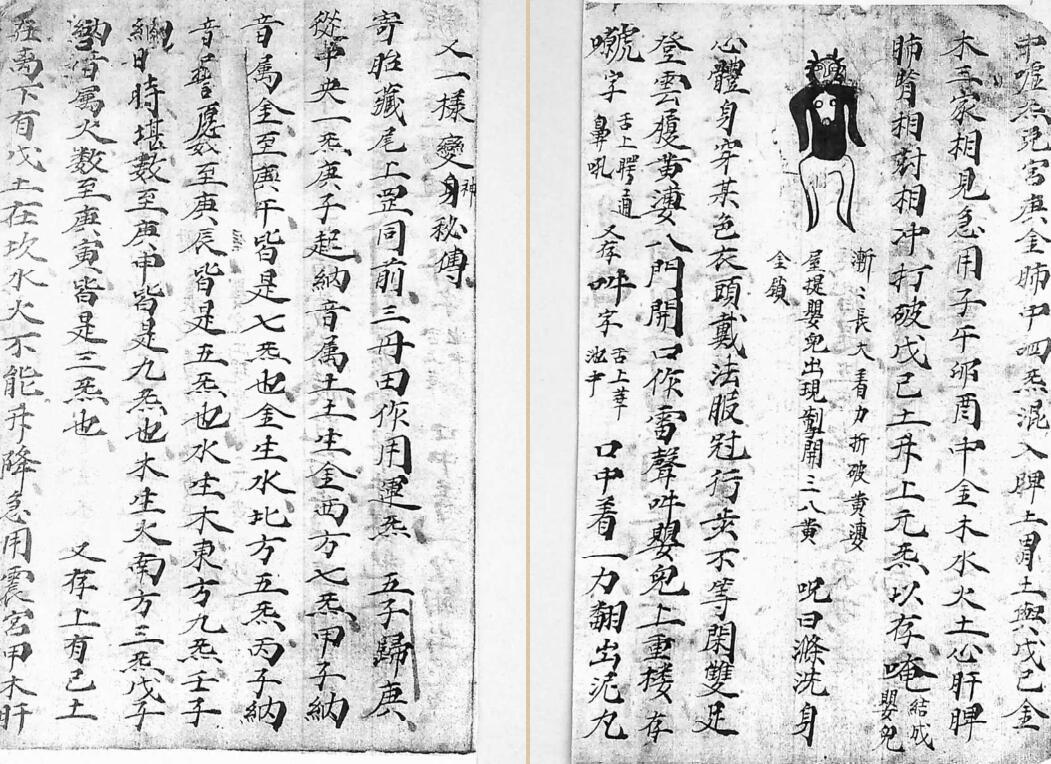 又一樣變身神秘傳
寄胎藏尾上罡同前三丹田作用運炁 五子歸庚
從中央一炁庚子起納音属土土生金西方七炁甲子納
音属金至庚午皆是七炁也金生水北方五炁丙子納
音数至庚辰皆是五炁也水生木東方九炁壬子
納数至庚申皆是九炁也木生火南方三炁戊子
納音属火数至庚寅皆是三炁也 又存上有己土
在离下有戊土在坎水火不能升降急用震宮甲木肝
中嘘炁兑宮庚金肺中呬炁混入脾上胃土與戊己金
木三家相見急用子午卯酉中金木水火土心肝脾
肺腎相對相冲打破戊己土升上元炁以存唵結成嬰兒
漸〻長大看力折破黄㜑
屋提嬰兒出現掣開三八黄
金鎖
呪曰滌洗身
心體身穿某色衣頭戴法服冠行步不等閑雙足
登雲履黄㜑八門開口作雷聲吽嬰兒上重樓存
唬字舌上腭通鼻吼又存吽字舌上
口中着一力翻出泥丸